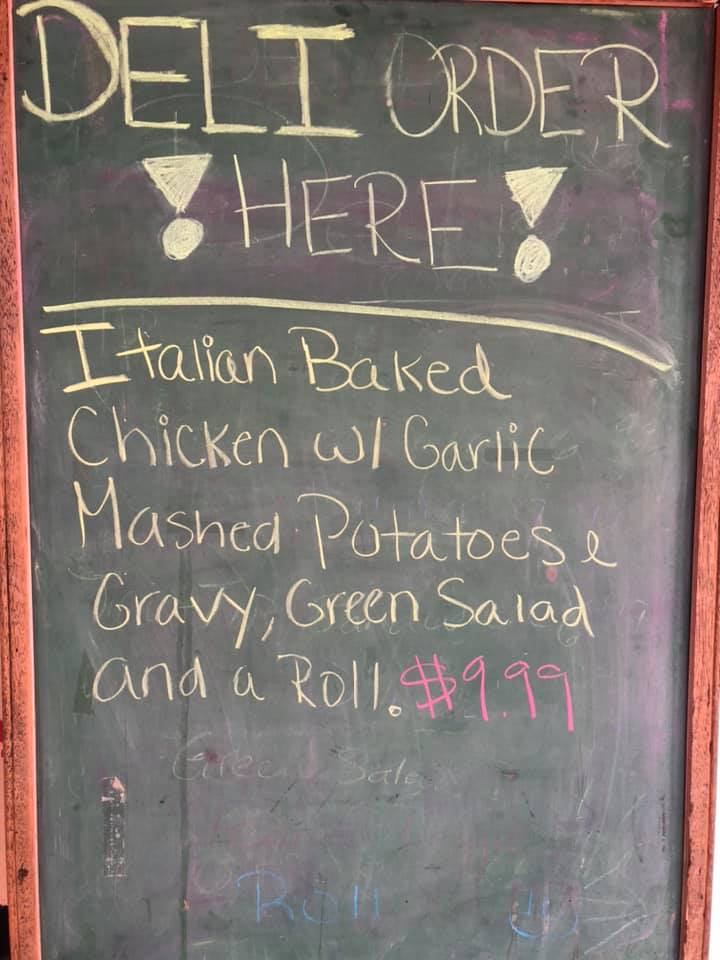 DELI ORDER
! HERE !
Italian Baked
Chicken w/ Garlic
Mashed Potatoes &
Gravy, Green Salad
and a Roll. $9.99
Green Salad
Roll